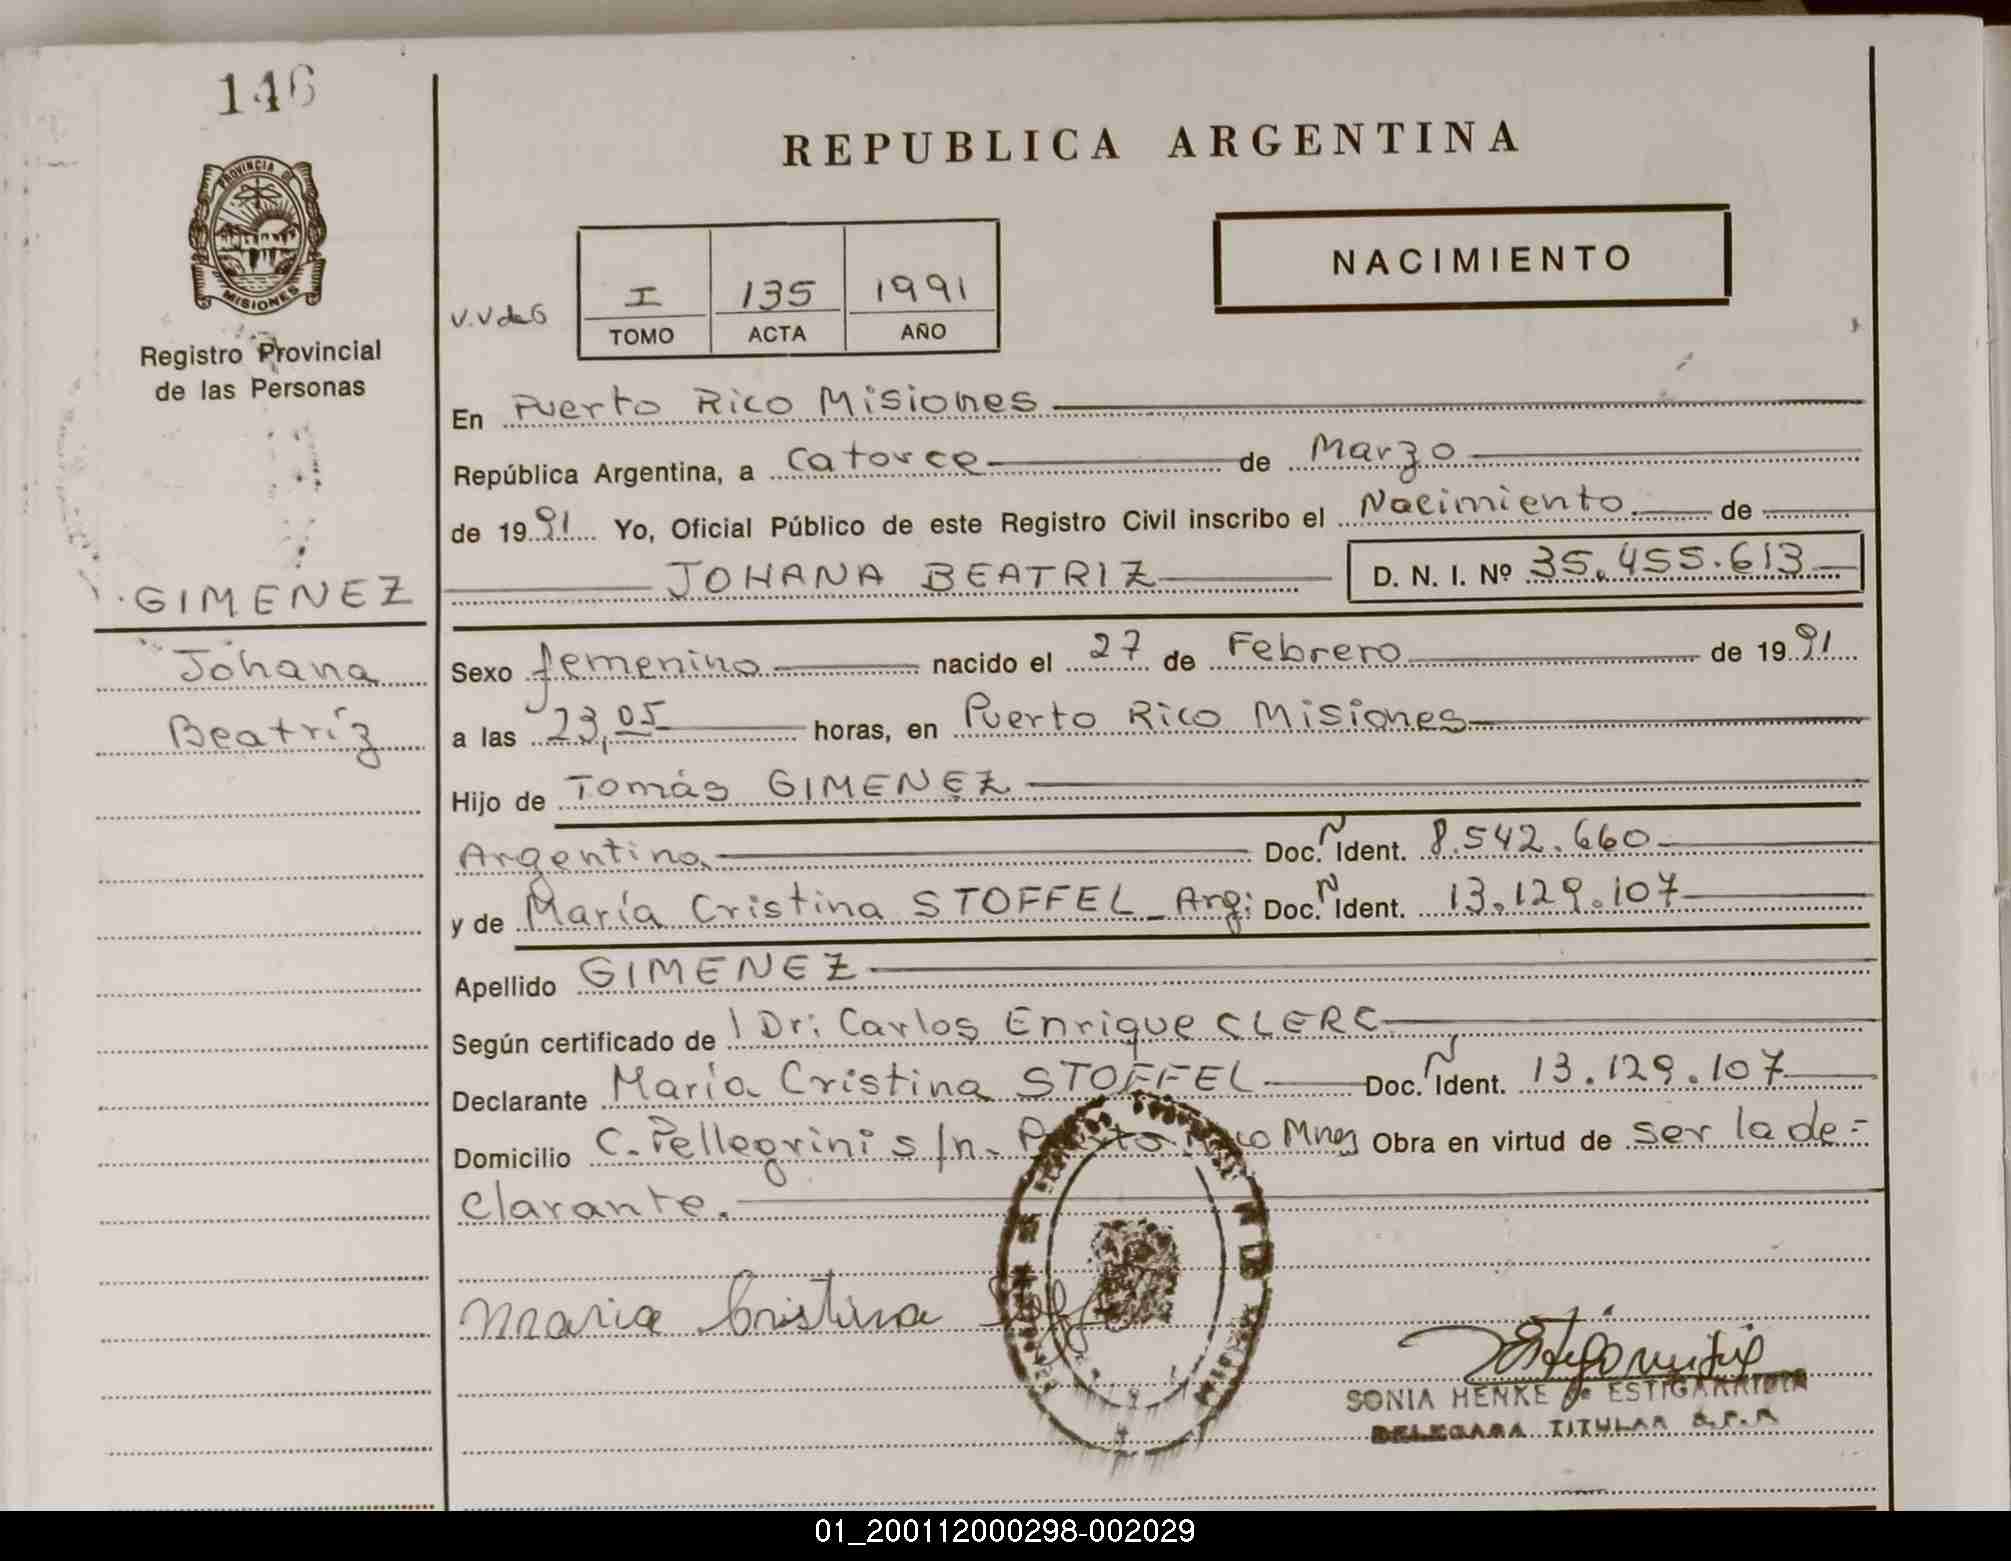 146
REPUBLICA ARGENTINA
PROVINCIA DE
MISIONES
NACIMIENTO
V.V de G
I 135 1991
TOMO ACTA AÑO
Registro Provincial
de las Personas
En Puerto Rico Misiones
República Argentina, a Catorce de Marzo
de 1991 Yo, Oficial Público de este Registro Civil inscribo el Nacimiento de
JOHANA BEATRIZ D. N. I. Nº 35.455.613
GIMENEZ
Johana
Beatríz
Sexo femenino nacido el 27 de Febrero de 1991
a las 23,05 horas, en Puerto Rico Misiones
Hijo de Tomás GIMENEZ
Argentino Doc. N Ident. 8.542.660
y de María Cristina STOFFEL_Arg: Doc. N Ident. 13.129.107
Apellido GIMENEZ
Según certificado de l Dr: Carlos Enrique CLERC
Declarante María Cristina STOFFEL Doc. N Ident. 13.129.107
Domicilio C. Pellegrini s/n. Puerto Rico Mnes Obra en virtud de ser la de=
clarante.
Maria Cristina Stoffel
SONIA HENKE de ESTIGARRIBIA
DELEGADA TITULAR R.P.P.
01_200112000298-002029